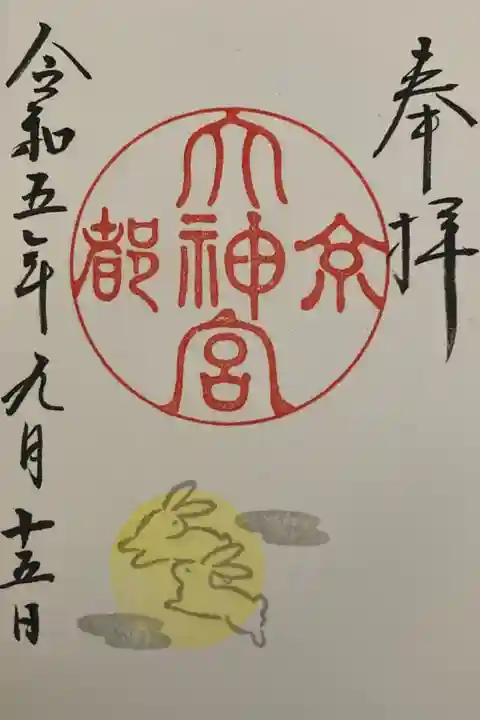 奉拝
京都大神宮
令和五年九月十五日